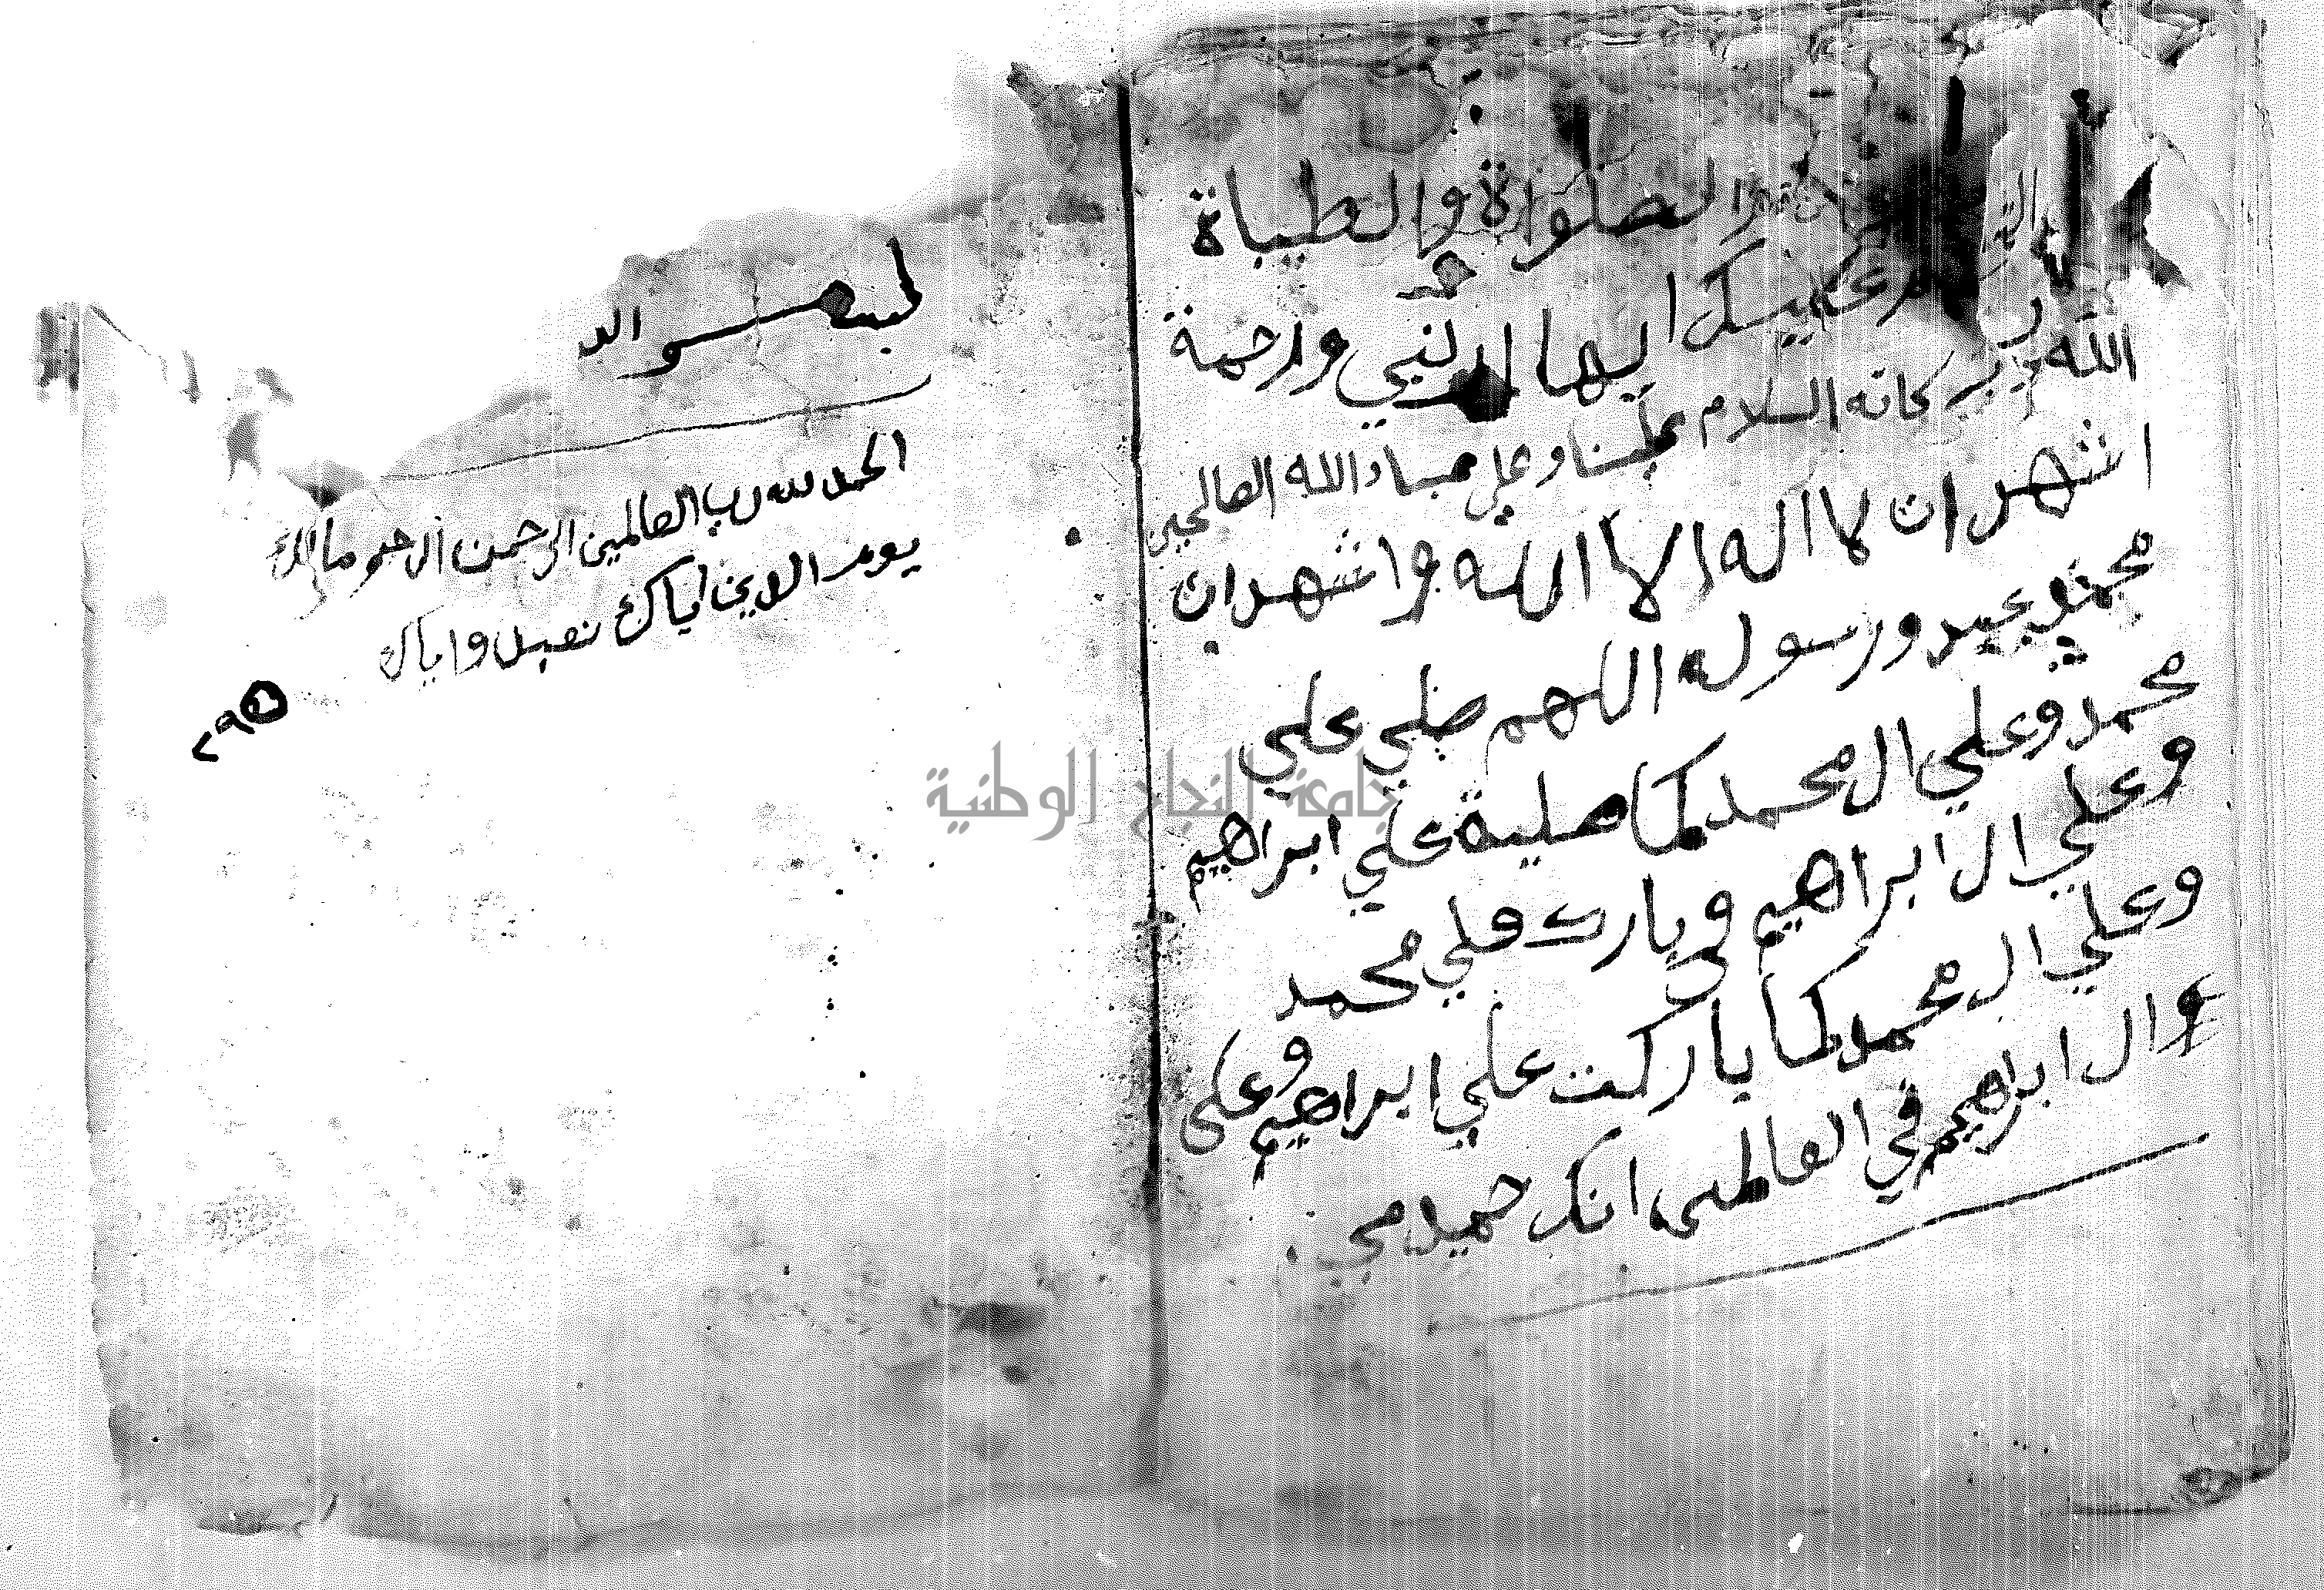 الصلواة والطيباة
عكيك ايها النبي ورحمة
الله وبركاته السلام علينا وعلي عباد الله الصالحين
اشهد ان لا اله الا الله واشهد ان
محمد عبد ورسوله اللهم صلي علي
محمد وعلي ال محمد كما صلية علي ابراهيم
وعلي ال ابراهيم وبارك علي محمد
وعلي ال محمد كما باركت علي ابراهيم وعلى
ال ابراهيم في العالمين انك حميد مجي
لبسم الله
الحمد لله رب العالمين الرحمن الرحيم مالك
يوم الدين اياك نعبد واياك
جامعة النجاح الوطنية